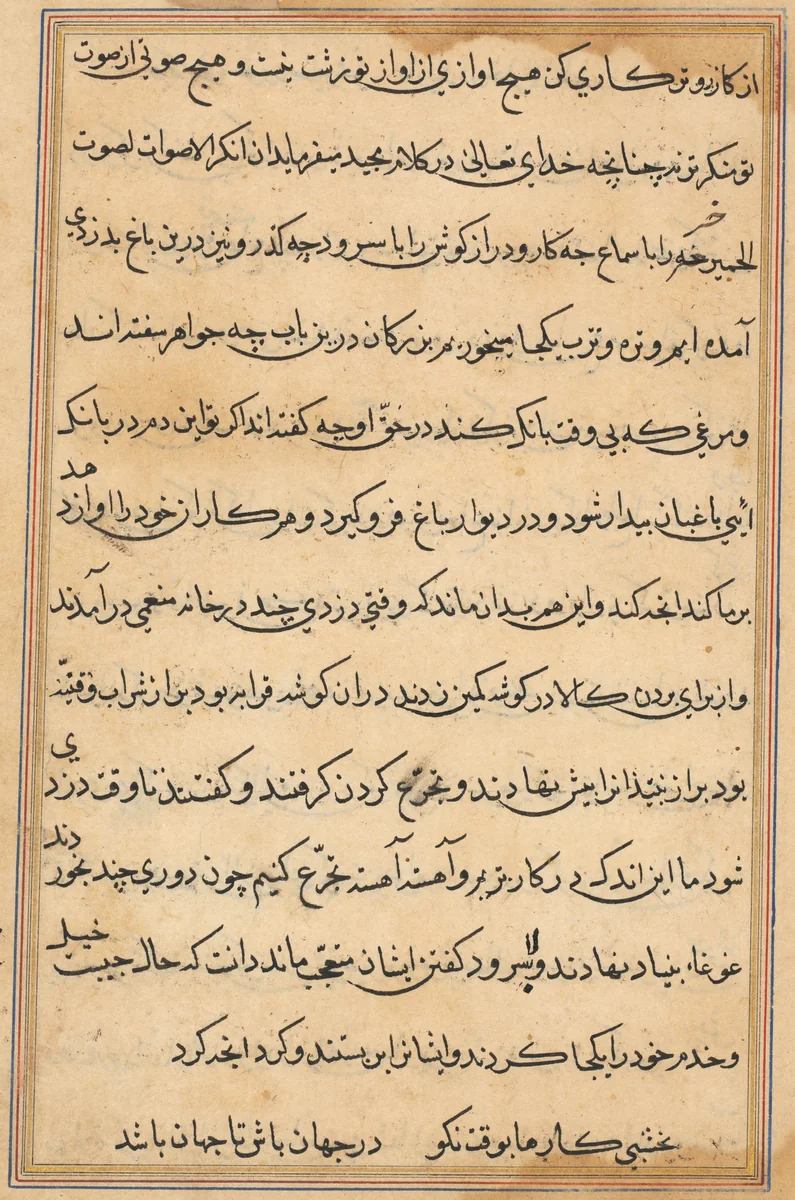 از کار رو تو کاری کن هیچ اوازی از اواز تو زشت نیست و هیچ صوتی از صوت
تو منکر تر نه چنانچه خدای تعالی در کلام مجید میفرماید ان انکر الاصوات لصوت
الحمیر خر خه را با سماع جه کار و دراز کوش را با سرود چه کذر و نیز درین باغ بدزدی
آمده ایم و تره و ترب یکجا میخوریم بزرکان درین باب چه جواهر سفته اند
و مرغی که بی وقت بانک کند در حق او چه کفته اند اکر تو این دم در بانک
ائی باغبان بیدار شود و در دیوار باغ فرو کیرد و هر کار از خود را اواز دهد
بر ما کند انجه کند و این هم بدان ماند که وقتی دزدی چند در خانه منعمی درآمدند
و از برای بردن کالا در کوشه کمین زدند دران کوشه قرابه بود پر از شراب و قنینه
بود پر از نبیذ انرا پیش نهادند و تجرّع کردن کرفتند و کفتند تا وقت دزدی
شود ما این اندک در کار بریم و آهسته آهسته تجرّع کنیم چون دوری چند بخوردند
غوغاء بنیاد نهادند و سرود کفتن ایشان متعجّب ماند دانست که حال چیست خیل
و خدم خود را یکجا کردند و ایشانرا ببستند و کرد انجه کرد
نخشبی کارها بوقت نکو در جهان باش تا جهان باشد